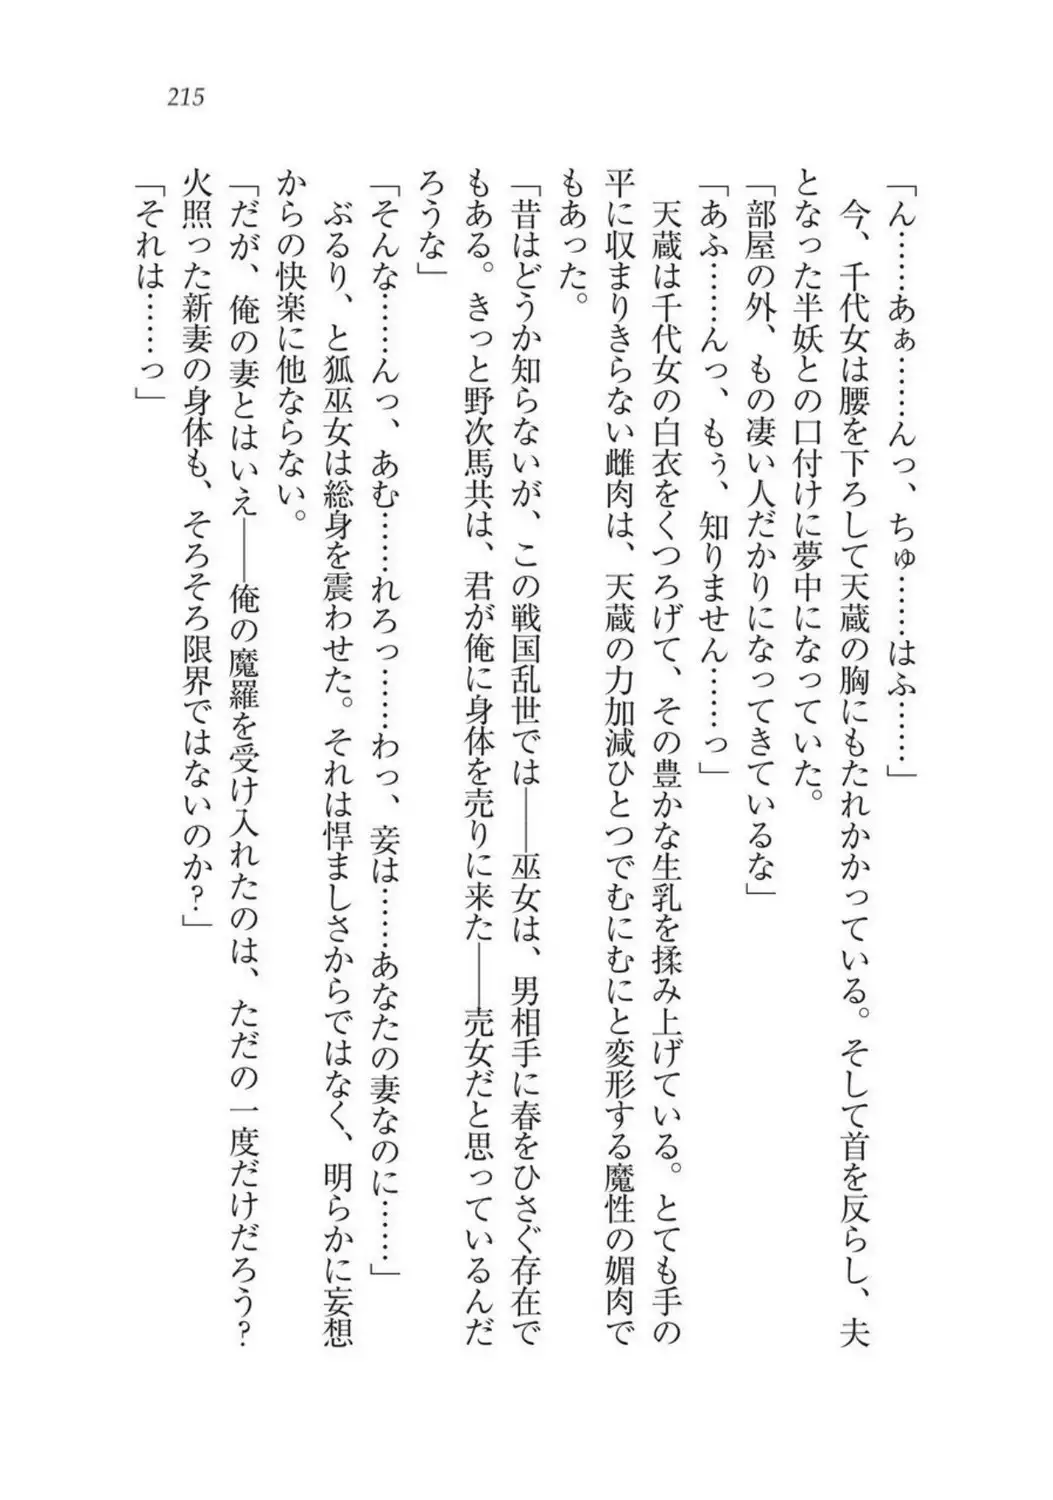 215
「ん……あぁ……んっ、ちゅ……はふ……」
今、千代女は腰を下ろして天蔵の胸にもたれかかっている。そして首を反らし、夫
となった半妖との口付けに夢中になっていた。
「部屋の外、もの凄い人だかりになってきているな」
「あふ……んっ、もぅ、知りません……っ」
天蔵は千代女の白衣をくつろげて、その豊かな生乳を揉み上げている。とても手の
平に収まりきらない雌肉は、天蔵の力加減ひとつでむにむにと変形する魔性の媚肉で
もあった。
「昔はどうか知らないが、この戦国乱世では――巫女は、男相手に春をひさぐ存在で
もある。きっと野次馬共は、君が俺に身体を売りに来た――売女だと思っているんだ
ろうな」
「そんな……んっ、あむ……れろっ……わっ、妾は……あなたの妻なのに……」
ぶるり、と狐巫女は総身を震わせた。それは悍ましさからではなく、明らかに妄想
からの快楽に他ならない。
「だが、俺の妻とはいえ――俺の魔羅を受け入れたのは、ただの一度だけだろう？
火照った新妻の身体も、そろそろ限界ではないのか？」
「それは……っ」